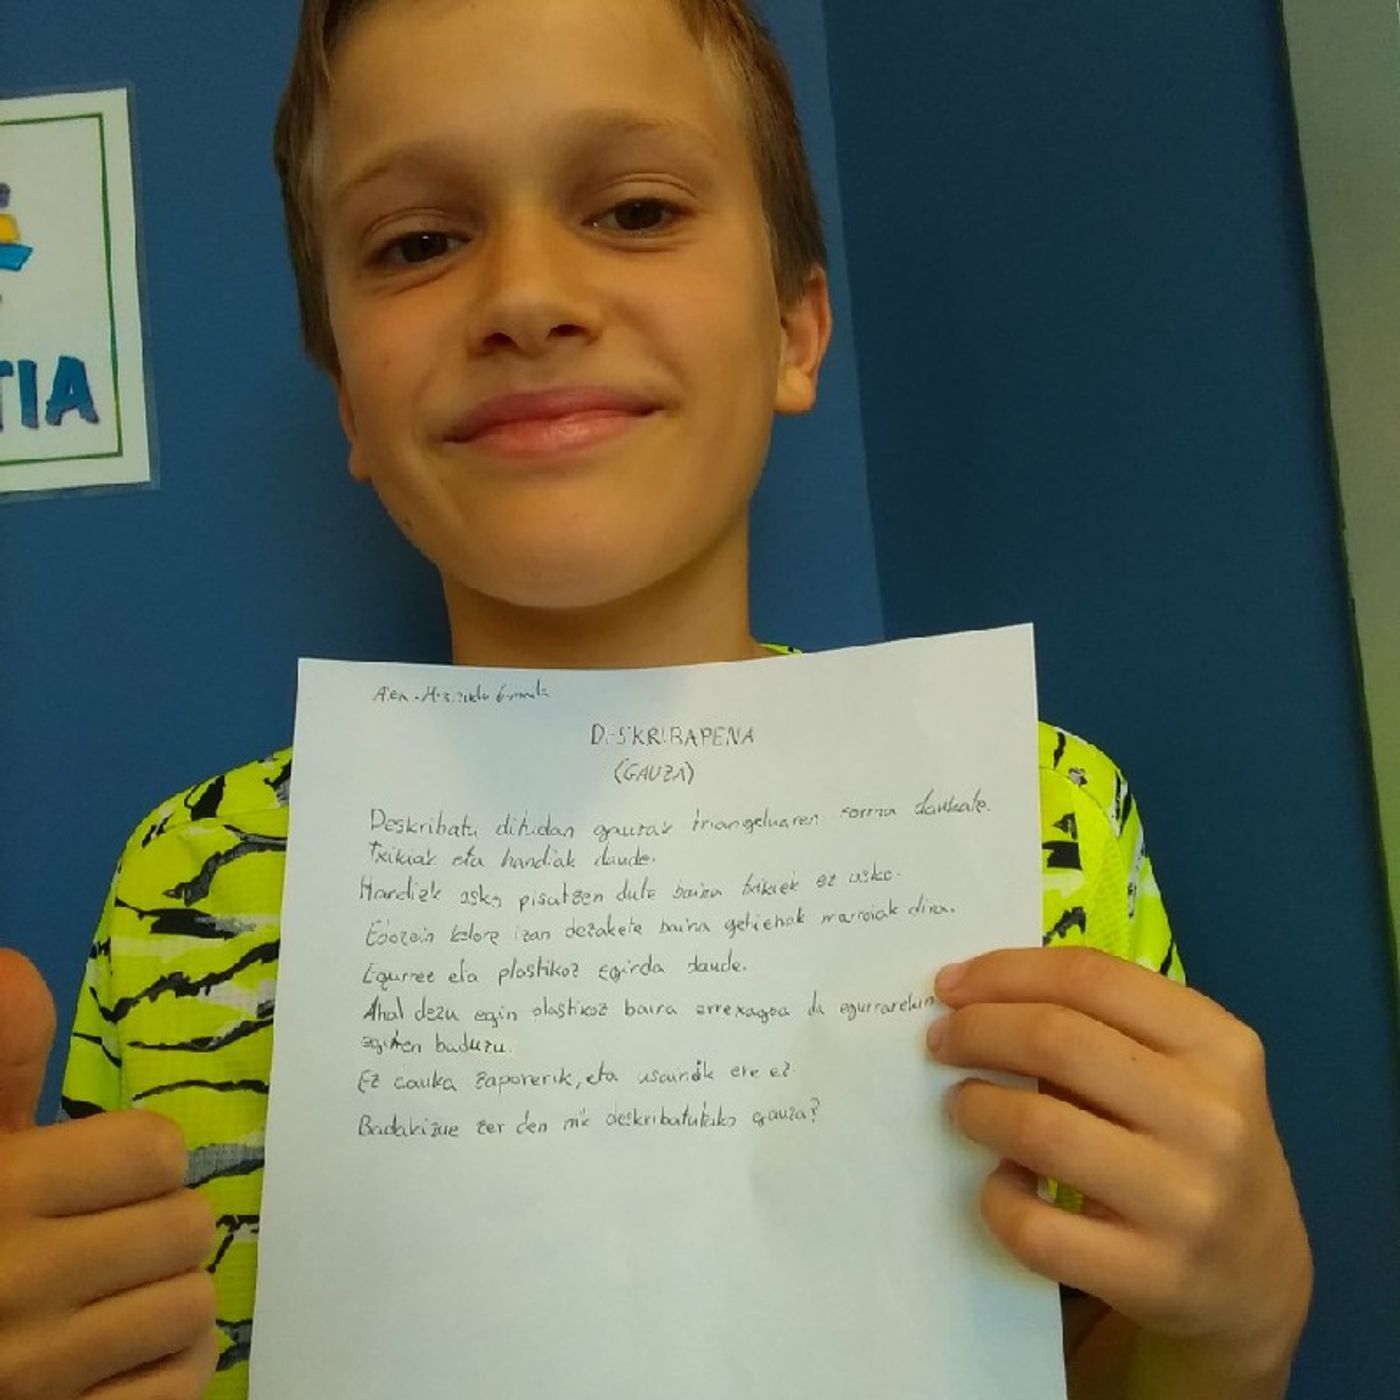 TIA
DESKRIBAPENA
(GAUZA)
Deskribatu ditudan gauzak triangeluaren forma daukate.
Txikiak eta handiak daude.
Handiek asko pisatzen dute baina txikiek ez asko.
Edozein kolore izan dezakete baina gehienak marroiak dira.
Egurrez eta plastikoz eginda daude.
Ahal dezu egin plastikoz baina errexagoa da egurrarekin
egiten baduzu.
Ez dauka zaporerik, eta usainik ere ez.
Badakizue zer den nik deskribatutako gauza?